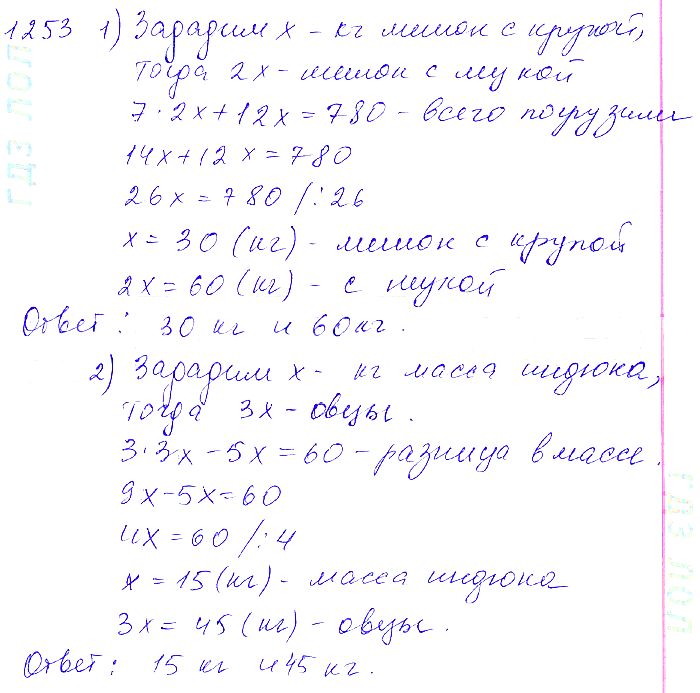 1253 1) Зададим x - кг мешок с крупой,
тогда 2x - мешок с мукой
7·2x+12x=780 - всего погрузили
14x+12x=780
26x=780 /:26
x=30 (кг) - мешок с крупой
2x=60 (кг) - с мукой
Ответ: 30 кг и 60кг.
2) Зададим x - кг масса индюка,
тогда 3x - овцы.
3·3x-5x=60 - разница в массе.
9x-5x=60
4x=60 /:4
x=15 (кг) - масса индюка
3x=45 (кг) - овцы.
Ответ: 15 кг и 45 кг.
ГДЗ ЛОЛ
ГДЗ ЛОЛ